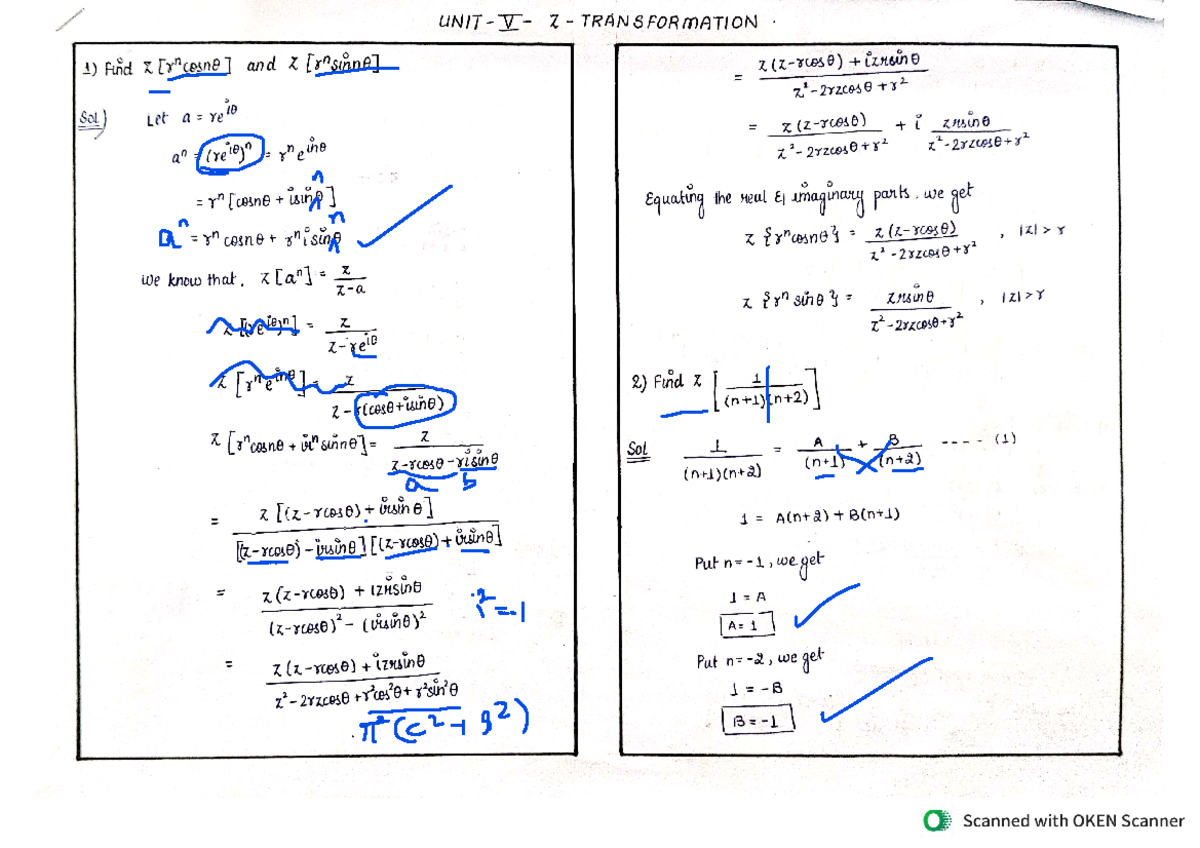 UNIT - V - Z - TRANSFORMATION .
1) Find Z[rⁿcosnθ] and Z[rⁿsinnθ]
Sol) Let a = re^{iθ}
aⁿ = (re^{iθ})ⁿ = rⁿe^{inθ}
= rⁿ[cosnθ + isinθ] n
aⁿ = rⁿ cosnθ + rⁿ i sinθ n
We know that, Z[aⁿ] = z/(z-a)
Z[(re^{iθ})ⁿ] = z/(z-re^{iθ})
Z[rⁿe^{inθ}] = z/(z-r(cosθ+isinθ))
Z[rⁿcosnθ + irⁿ sinnθ] = z/(z-rcosθ-risinθ)
a b
= z[(z-rcosθ)+irsinθ]/([(z-rcosθ)-irsinθ][(z-rcosθ)+irsinθ])
= (z(z-rcosθ) + izrsinθ)/((z-rcosθ)² - (irsinθ)²) i² = -1
= (z(z-rcosθ)+izrsinθ)/(z²-2rzcosθ+r²cos²θ+r²sin²θ)
r²(c²+s²)
= (z(z-rcosθ)+izrsinθ)/(z²-2rzcosθ+r²)
= z(z-rcosθ)/(z²-2rzcosθ+r²) + i zrsinθ/(z²-2rzcosθ+r²)
Equating the real & imaginary parts. we get
Z{rⁿcosnθ} = z(z-rcosθ)/(z²-2rzcosθ+r²) , |z|>r
Z{rⁿ sinθ} = zrsinθ/(z²-2rzcosθ+r²) , |z|>r
2) Find Z[1/((n+1)(n+2))]
Sol 1/((n+1)(n+2)) = A/(n+1) + B/(n+2) ---- (1)
1 = A(n+2)+B(n+1)
Put n=-1, we get
1 = A
A = 1
Put n=-2, we get
1 = -B
B = -1
Scanned with OKEN Scanner